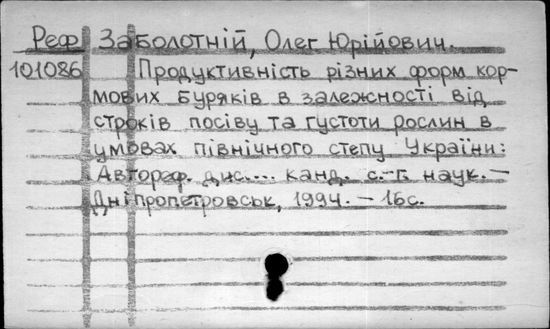 Реф Заболотній, Олег Юрійович.
101086 Продуктивність різних форм кор-
мових буряків в залежності від
строків посіву та густоти рослин в
умовах північного степу України:
Автореф. дис.... канд. с.-г. наук.-
Дніпропетровськ, 1994. - 16с.